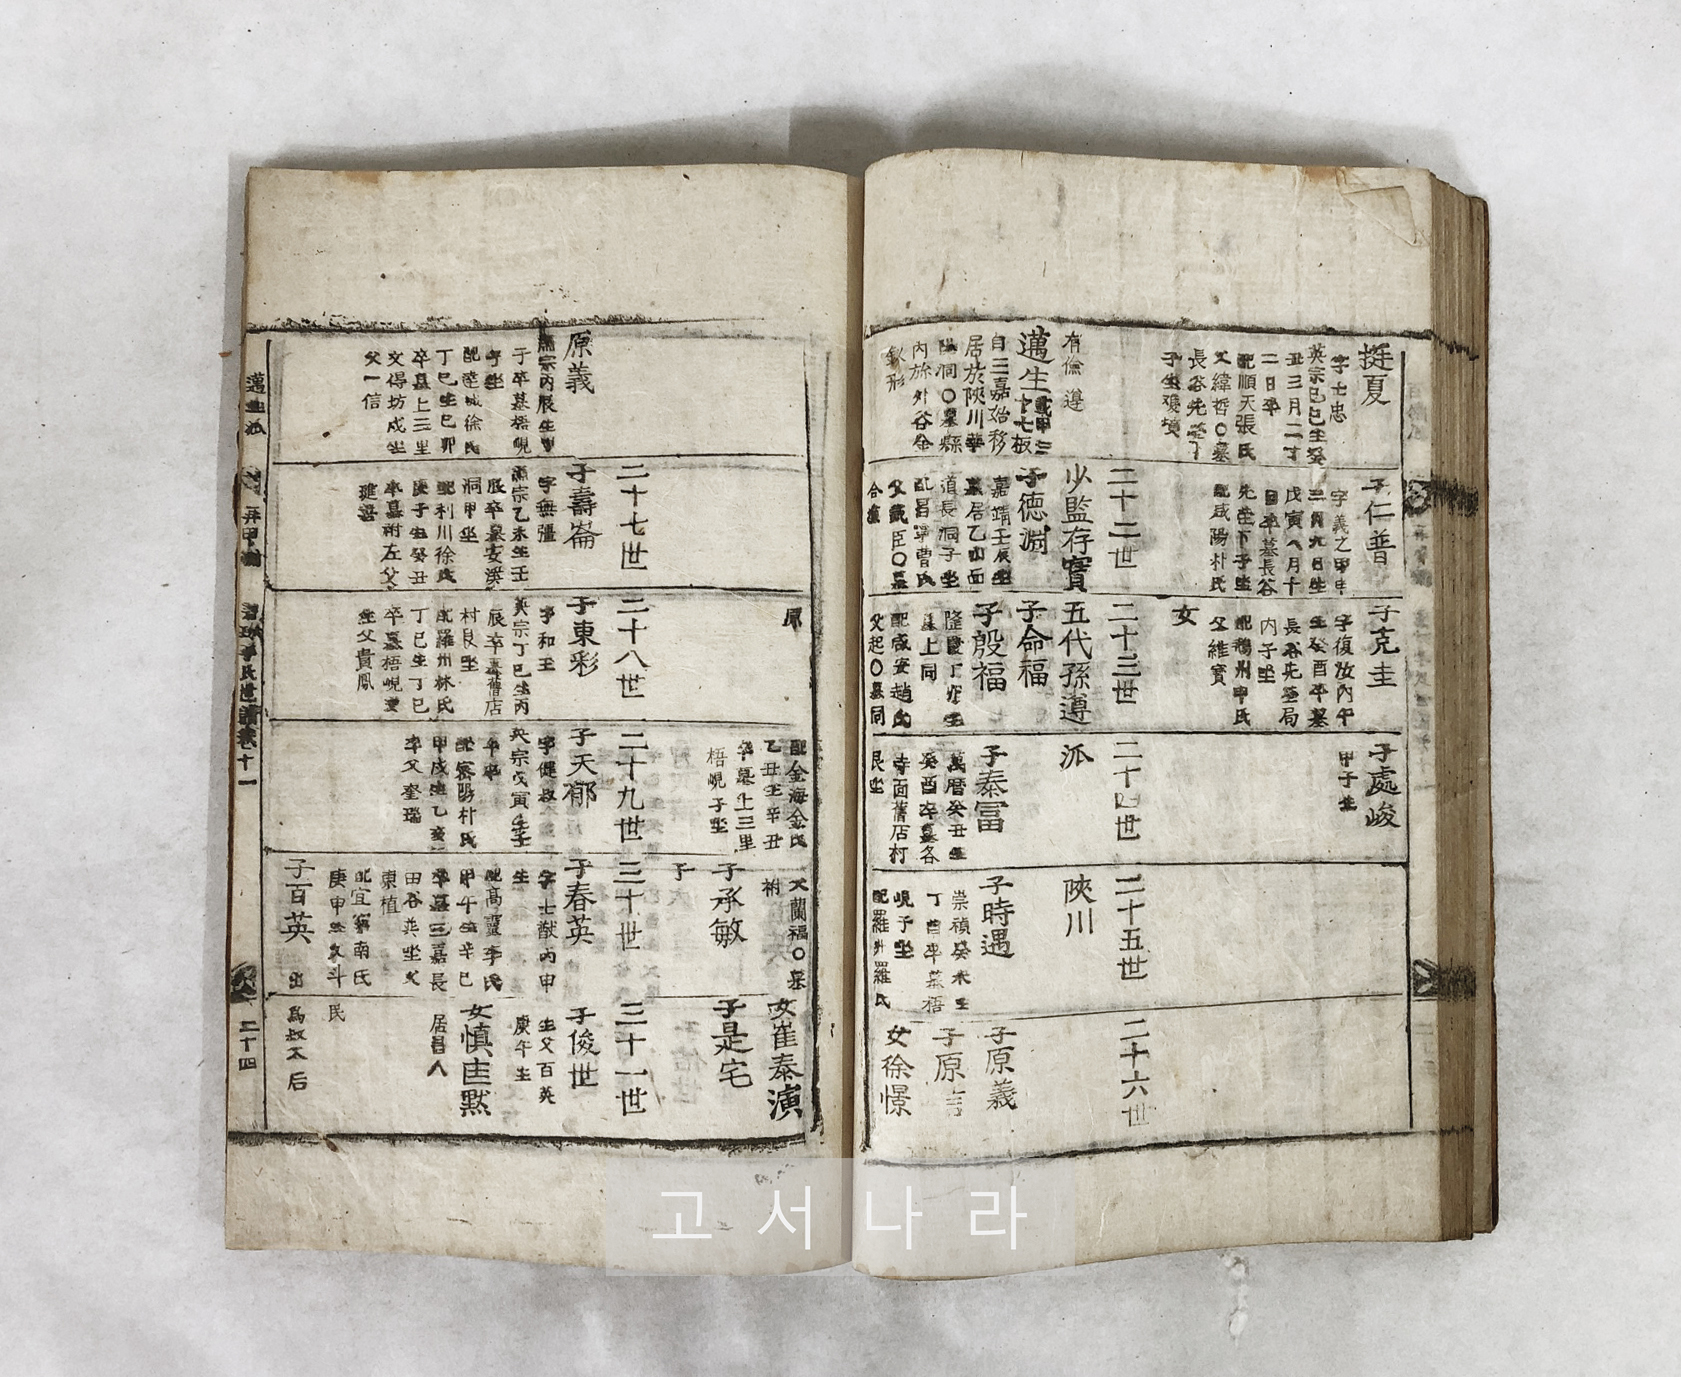 挺夏
字士忠
英宗己巳生癸
丑三月二丁
二日卒
配順天張氏
父緯哲〇墓
長谷先塋
有倫遵
邁生
自三嘉始移
居於陜川
洞〇墓縣
内於外谷金
釵形
子仁普
字義之甲申
三月九日生
戊寅八月十
日卒墓長谷
先塋下子坐
配咸陽朴氏
二十二世
少監存實
子德淵
嘉靖壬辰生
墓居乙山面
道長洞子坐
配昌寧曹氏
父戴臣〇墓
合窆
子克圭
字復汝丙午
生癸酉卒墓
長谷先塋局
内子坐
配鵝州申氏
父維寶
女
二十三世
五代孫遵
子命福
子殷福
隆慶丁卯生
墓上同
配咸安趙氏
父起〇墓同
子處峻
甲子生
二十四世
派
子泰冨
萬曆癸丑生
癸酉卒墓各
寺面舊店村
艮坐
二十五世
陜川
子時遇
崇禎癸未生
丁酉卒墓梧
峴子坐
配羅州羅氏
二十六世
子原義
子原吉
女徐憬
原義
肅宗丙辰生
子卒墓梧峴
子坐
配達城徐氏
丁巳生己卯
卒墓上三里
文得坊戌坐
父一信
二十七世
子壽崙
字無彊
肅宗乙未生壬
辰卒墓安漢
洞甲坐
配利川徐氏
庚子生癸丑
卒墓祔左父
原
二十八世
子東彩
字和玉
英宗丁巳生丙
辰卒墓舊店
村艮坐
配羅州林氏
丁巳生丁巳
卒墓梧峴艮
坐父貴鳳
配金海金氏
乙丑生辛丑
卒墓上三里
梧峴子坐
二十九世
子天郁
字健叔
英宗戊寅生壬
午卒
配密陽朴氏
甲戌生乙亥
卒父奎瑞
父蘭福〇墓
祔
子承敏
子
三十世
子春英
字士猷丙申
生
配高靈李氏
甲午生辛巳
卒墓三嘉長
田谷巽坐父
東植
配宜寧南氏
庚申生父斗
子百英
出
女崔泰演
子是宅
三十一世
子俊世
生父百英
庚午生
女愼圭默
居昌人
民
爲叔不后
邁生派
二十四
고서나라